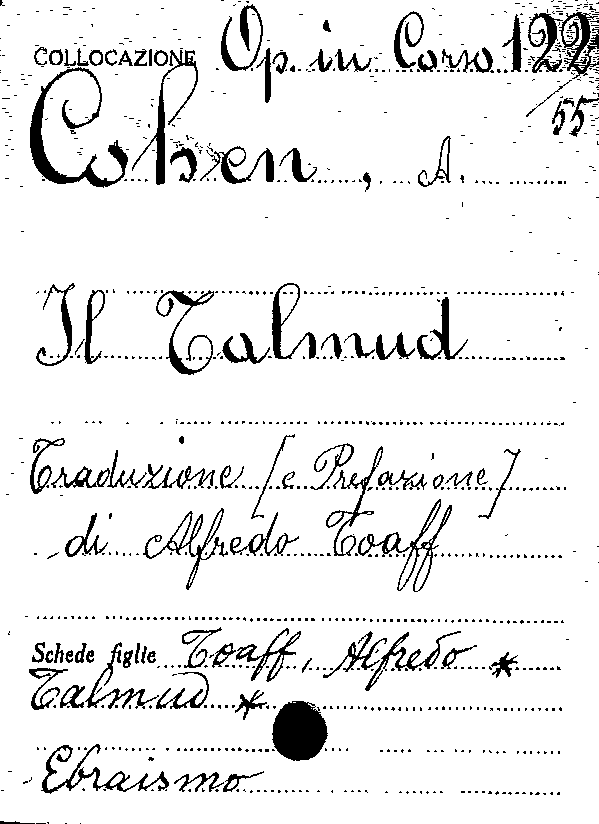 COLLOCAZIONE Op. in Corso 122
/55
Cohen, A.
Il Talmud
Traduzione [e Prefazione]
di Alfredo Toaff
Schede figlie Toaff, Alfredo *
Talmud *
Ebraismo